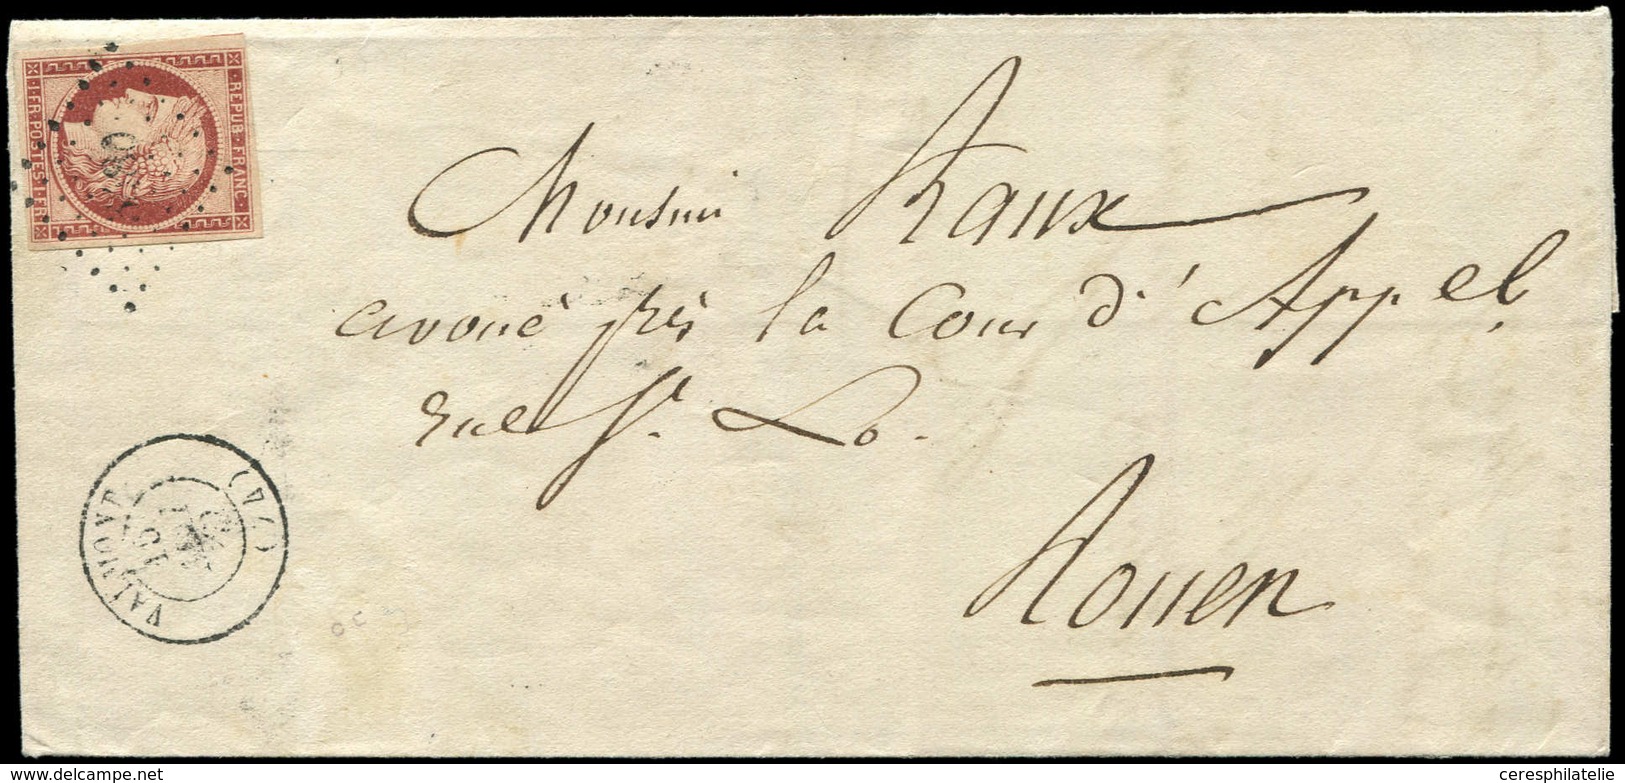 REPUB·FRANC·
1·FR·POSTES·1·FR·
Monsieur Raux
avoué près la Cour d'Appel
rue St. Lo.
Rouen
VALMONT (74)
15
www.delcampe.net
ceresphilatelie